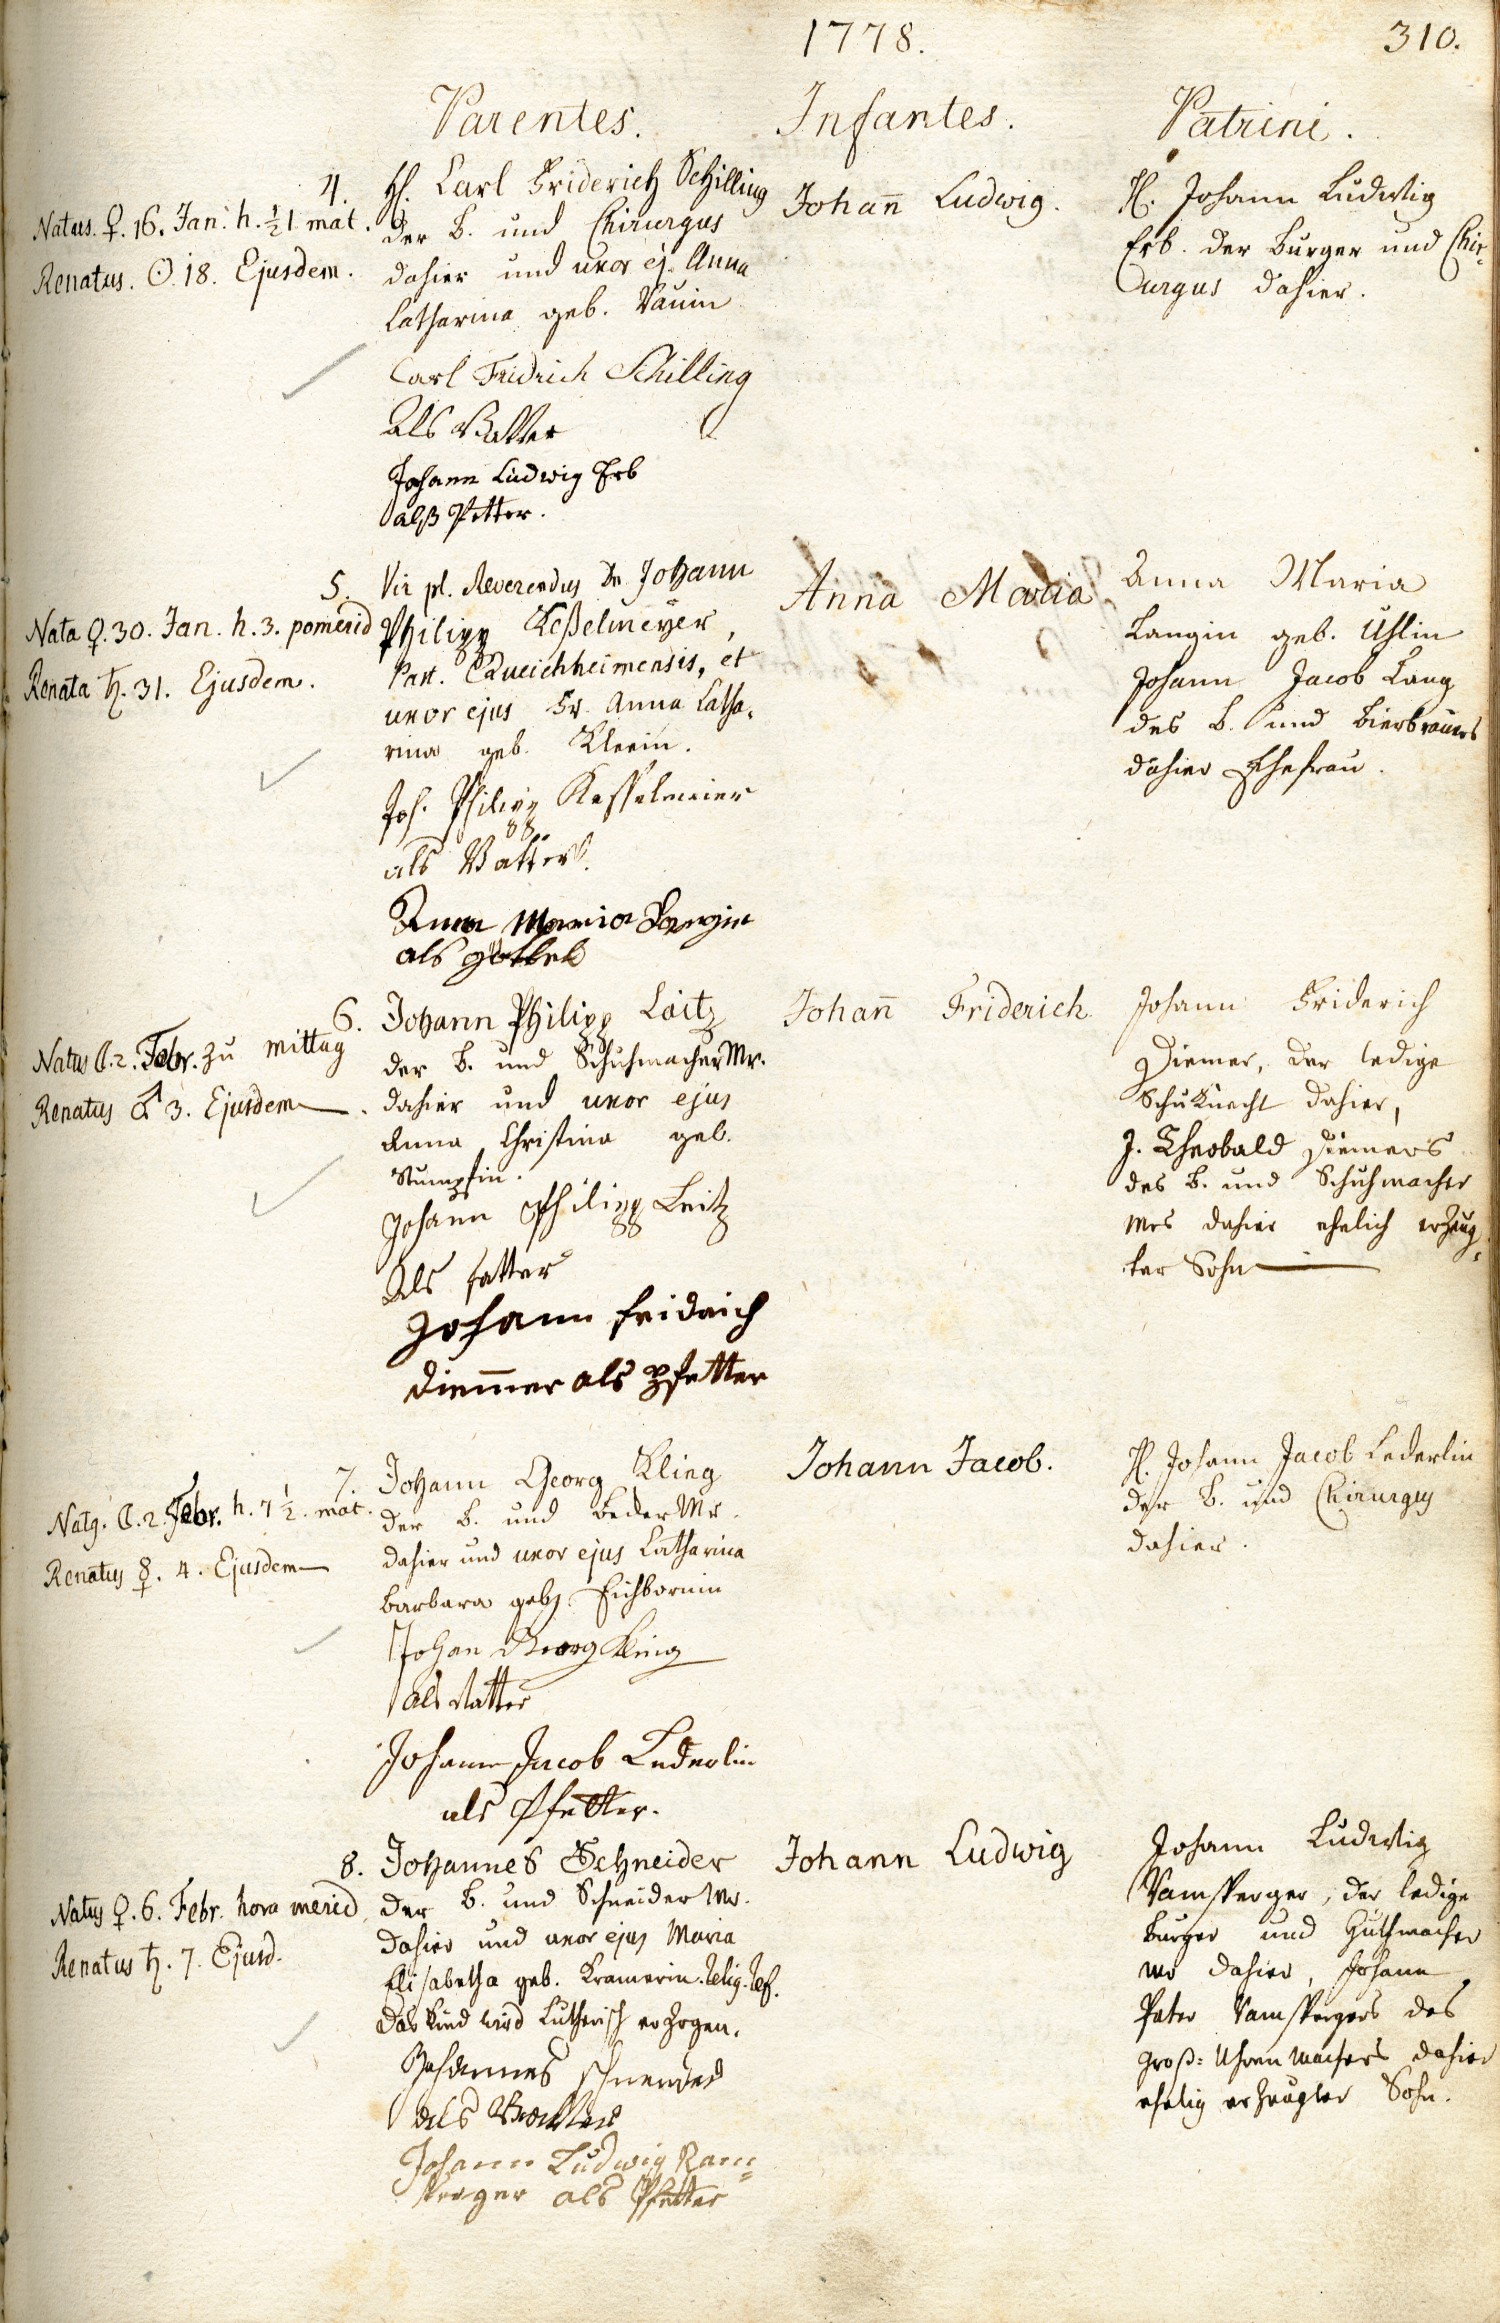 1778.
310.
Parentes.
Infantes.
Patrini.
4.
Natus. ♀. 16. Jan. h. ½1 mat.
Renatus. ☉. 18. Ejusdem.
H. Carl Friderich Schilling
der B. und Chirurgus
dahier und uxor ej. Anna
Catharina geb.
Carl Fridrich Schilling
Als Vatter
Johann Ludwig Erb
alß Petter.
Johañ Ludwig.
H. Johann Ludwig
Erb. der Burger und Chir-
urgus dahier.
5.
Nata ♀. 30. Jan. h. 3. pomerid
Renata ♄. 31. Ejusdem.
Vir pl. Reverendus Dn Johann
Philipp Keßelmeyer,
Past. Queichheimensis, et
uxor ejus Fr. Anna Catha-
rina geb. Kleein.
Joh. Philipp Kesselmeier
als Vatter.
Anna Maria Langin
als göttel
Anna Maria
Anna Maria
Langin geb. Uhlin
Johann Jacob Lang
des B. und Bierbrauers
dahier Ehefrau.
6.
Natus ☾. 2. Febr. zu mittag
Renatus ♂ 3. Ejusdem.
Johann Philipp Laitz
der B. und Schuhmacher Mr.
dahier und uxor ejus
Anna Christina geb.
Stumpfin.
Johann Philipp Leitz
Als fatter
Johann fridrich
Diem̄er als pfetter
Johañ Friderich
Johann Friderich
Diemer, der ledige
Schuknecht dahier,
J. Theobald Diemers
des B. und Schuhmacher
Mrs dahier ehelich erzeug-
ter Sohn
7.
Natg. ☾. 2. Febr. h. 7½. mat.
Renatus ☿. 4. Ejusdem
Johann Georg Kling
der B. und Beder Mr.
dahier und uxor ejus Catharina
Barbara geb. Eichbornin
Johan Georg Kling
als Vatter
Johann Jacob Lederlin
als Pfetter.
Johann Jacob.
H. Johann Jacob Lederlin
der B. und Chirurgus
dahier.
8.
Natus ♀. 6. Febr. hora merid
Renatus ♄. 7. Ejusd.
Johannes Schneider
der B. und Schneider Mr.
dahier und uxor ejus Maria
Elisabetha geb. Kramerin. Relig. Ref.
Das Kind wird Lutherisch erzogen.
Johannes schneider
als Vatter
Johann Ludwig Ram-
sperger als Pfetter
Johann Ludwig
Johann Ludwig
Ramsperger, der ledige
Burger und Huthmacher
Mr dahier, Johann
Peter Ramspergers des
Groß-Uhrenmachers dahier
ehelig erzeugter Sohn.